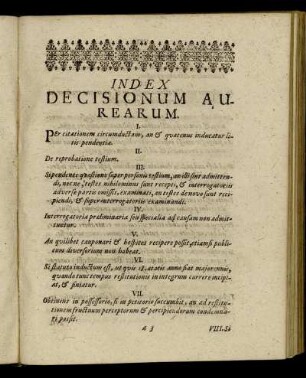 INDEX
DECISIONUM AU-
REARUM.
I.
Per citationem circumductam, an & quatenus inducatur li-
tis pendentia.
II.
De reprobatione testium.
III.
Si pendente quæstione super personis testium, an illi sint admitten-
di, nec ne, testes nihilominus sunt recepti, & interrogatoriis
adversæ partis omissis, examinati, an testes denuo sint reci-
piendi, & super interrogatoriis examinandi.
IV.
Interrogatoria præliminaria seu specialia ad causam non admit-
tuntur.
V.
An quilibet cauponari & hospites recipere possit, etiamsi publi-
cum diversorium non habeat.
VI.
Si statuto inductum est, ut quis 18. ætatis anno fiat major ennis,
quando tunc tempus restitutionis in integrum currere incipi-
at, & finiatur.
VII.
Obtinens in possessorio, si in petitorio succumbit, an ad restitu-
tionem fructuum perceptorum & percipiendorum condemna-
ri possit.
a 3 VIII. Si